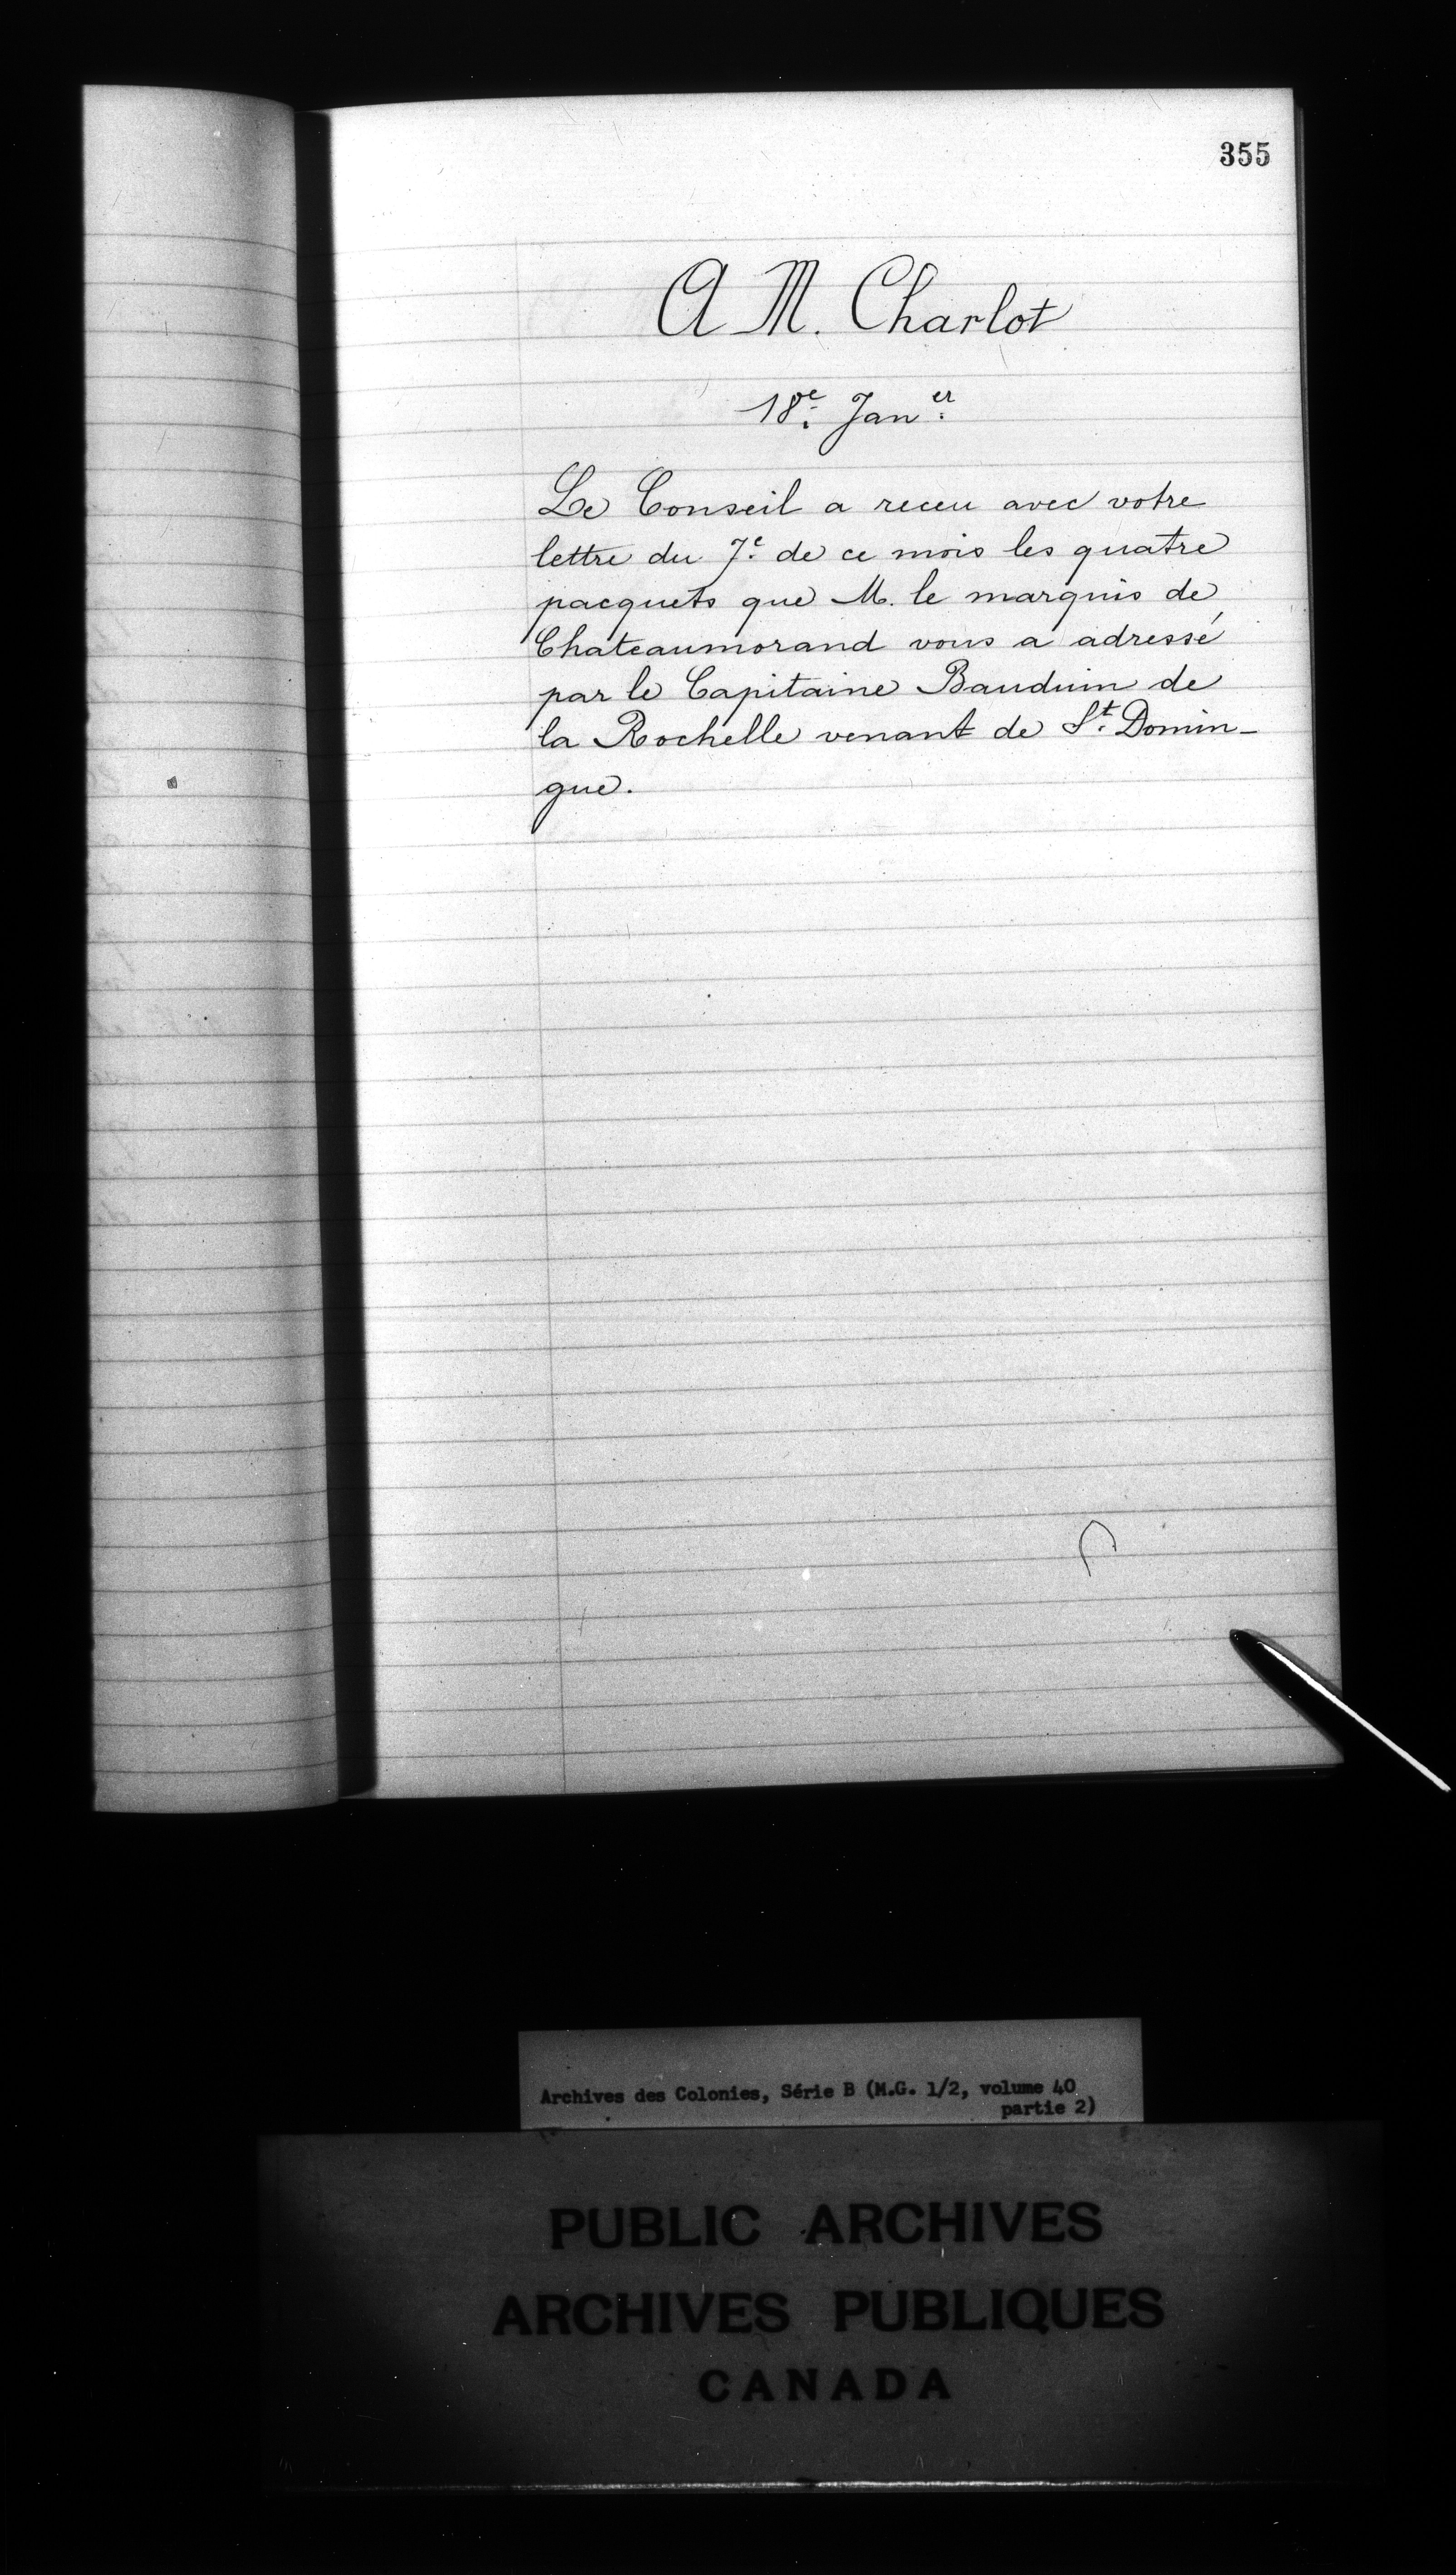 355
A M. Charlot
18e. Janer.
Le Conseil a receu avec votre
lettre du 7e. de ce mois les quatre
pacquets que M. le marquis de
Chateaumorand vous a adressé
par le Capitaine Bauduin de
la Rochelle venant de St. Domin-
gue.
Archives des Colonies, Série B (M.G. 1/2, volume 40
partie 2)
PUBLIC ARCHIVES
ARCHIVES PUBLIQUES
CANADA